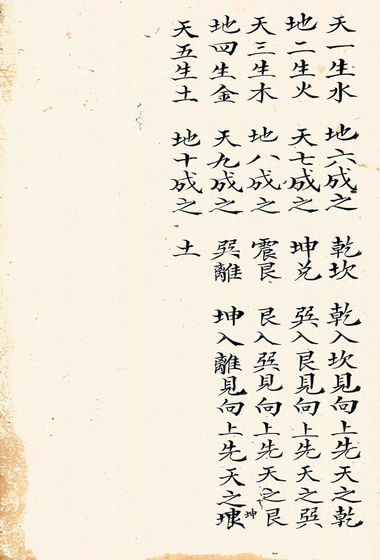 天一生水 地六成之 乾坎 乾入坎見向上先天之乾
地二生火 天七成之 坤兌 巽入艮見向上先天之巽
天三生木 地八成之 震艮 艮入巽見向上先天之艮
地四生金 天九成之 巽離 坤入離見向上先天之坤
天五生土 地十成之 土